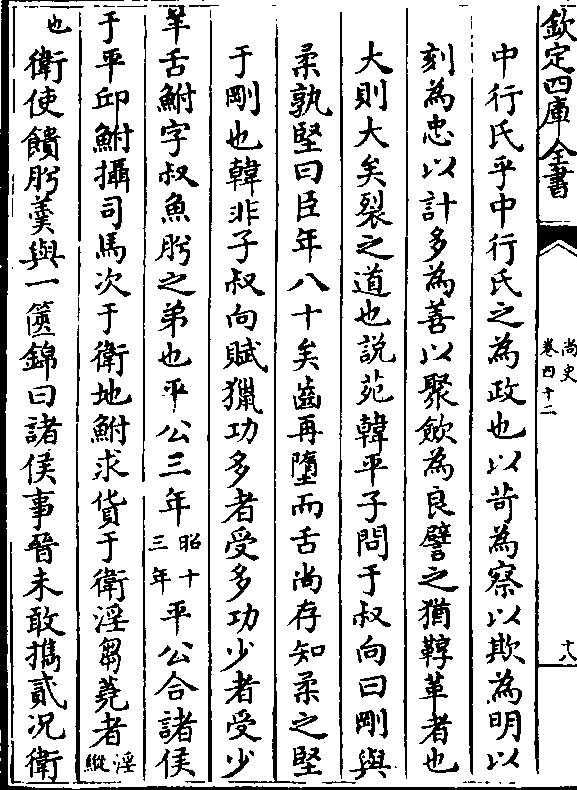 欽定四庫全書
尚史
卷四十二
十八
中行氏乎中行氏之為政也以苛為察以欺為明以
刻為忠以計多為善以聚斂為良譬之猶鞟革者也
大則大矣裂之道也説苑韓平子問于叔向曰剛與
柔孰堅曰臣年八十矣齒再墮而舌尚存知柔之堅
于剛也韓非子叔向賦獵功多者受多功少者受少
羊舌鮒字叔魚肸之弟也平公三年昭十三年平公合諸侯
于平邱鮒攝司馬次于衛地鮒求貨于衛淫芻蕘者淫縱
也衛使饋肸羹與一篋錦曰諸侯事晉未敢攜貳况衛